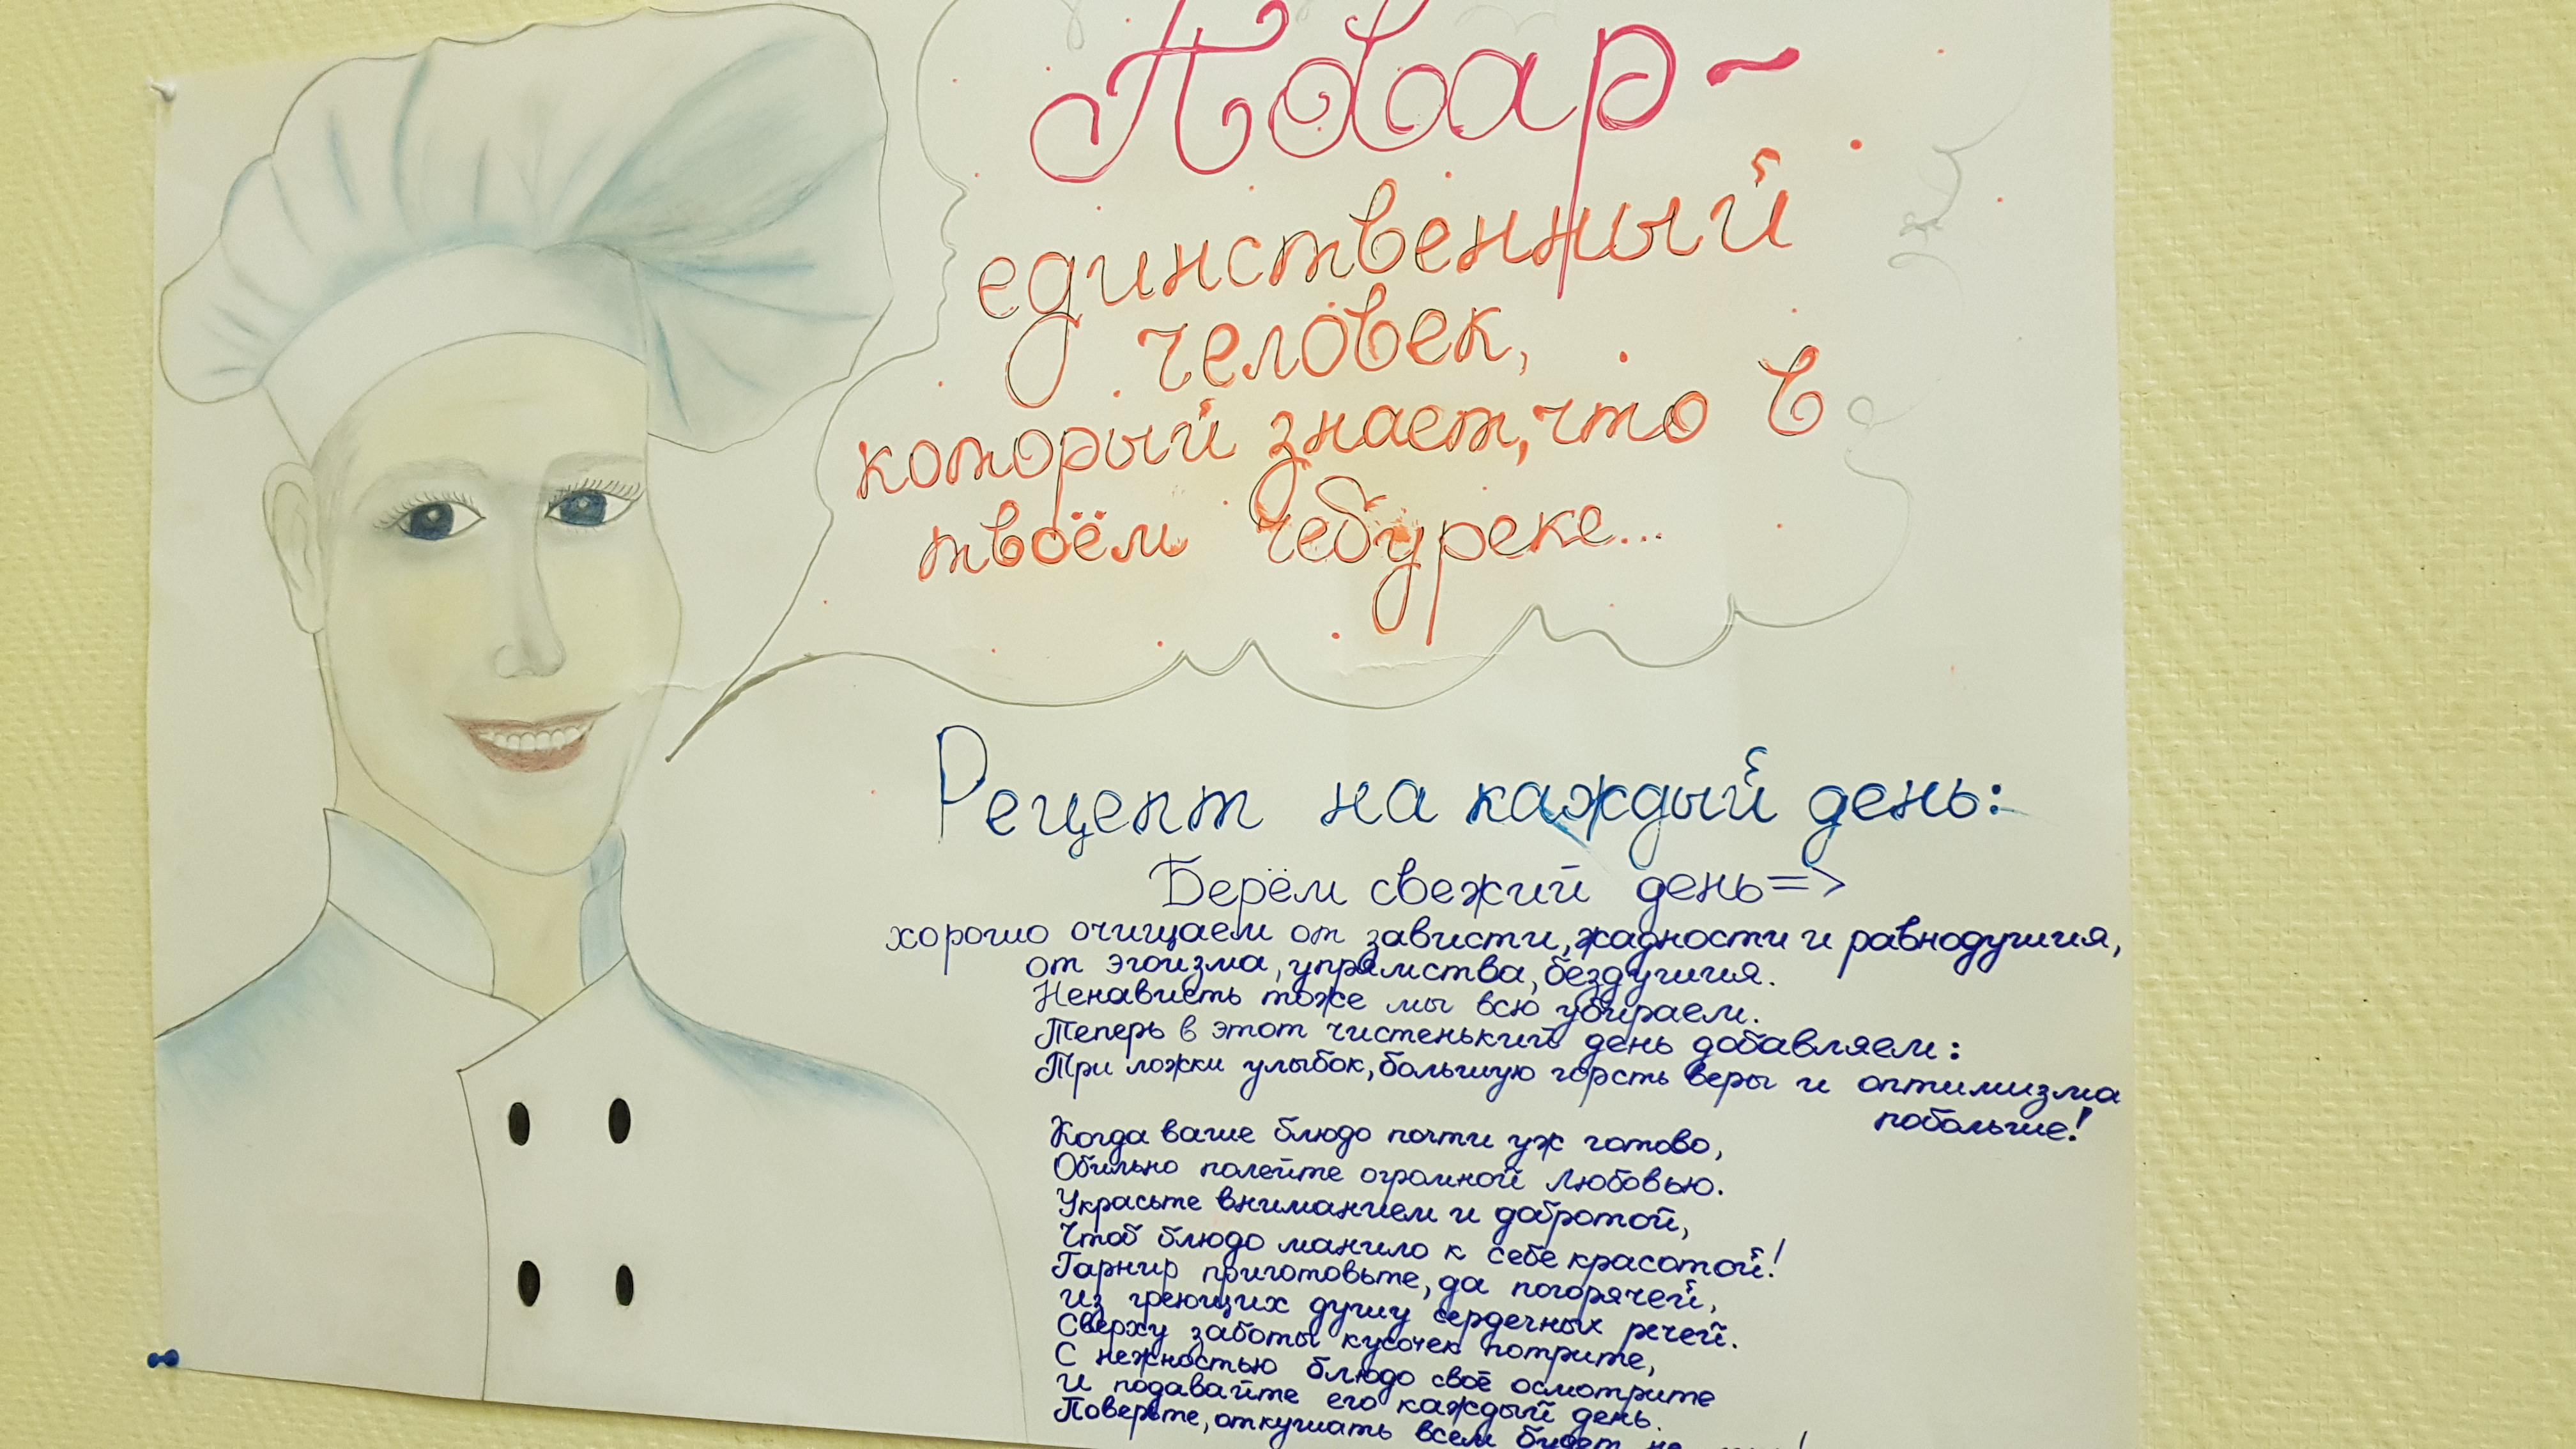 Повар-
единственный
человек,
который знает, что в
твоём чебуреке...
Рецепт на каждый день:
Берём свежий день=>
хорошо очищаем от зависти, жадности и равнодушия,
от эгоизма, упрямства, бездушия.
Ненависть тоже мы всю убираем.
Теперь в этот чистенький день добавляем:
Три ложки улыбок, большую горсть веры и оптимизма
побольше!
Когда ваше блюдо почти уж готово,
Обильно полейте огромной любовью.
Украсьте вниманием и добротой,
Чтоб блюдо манило к себе красотой!
Гарнир приготовьте, да погорячей,
из греющих душу сердечных речей.
Сверху заботы кусочек потрите,
С нежностью блюдо своё осмотрите
И подавайте его каждый день.
Поверьте, откушать всем будет не